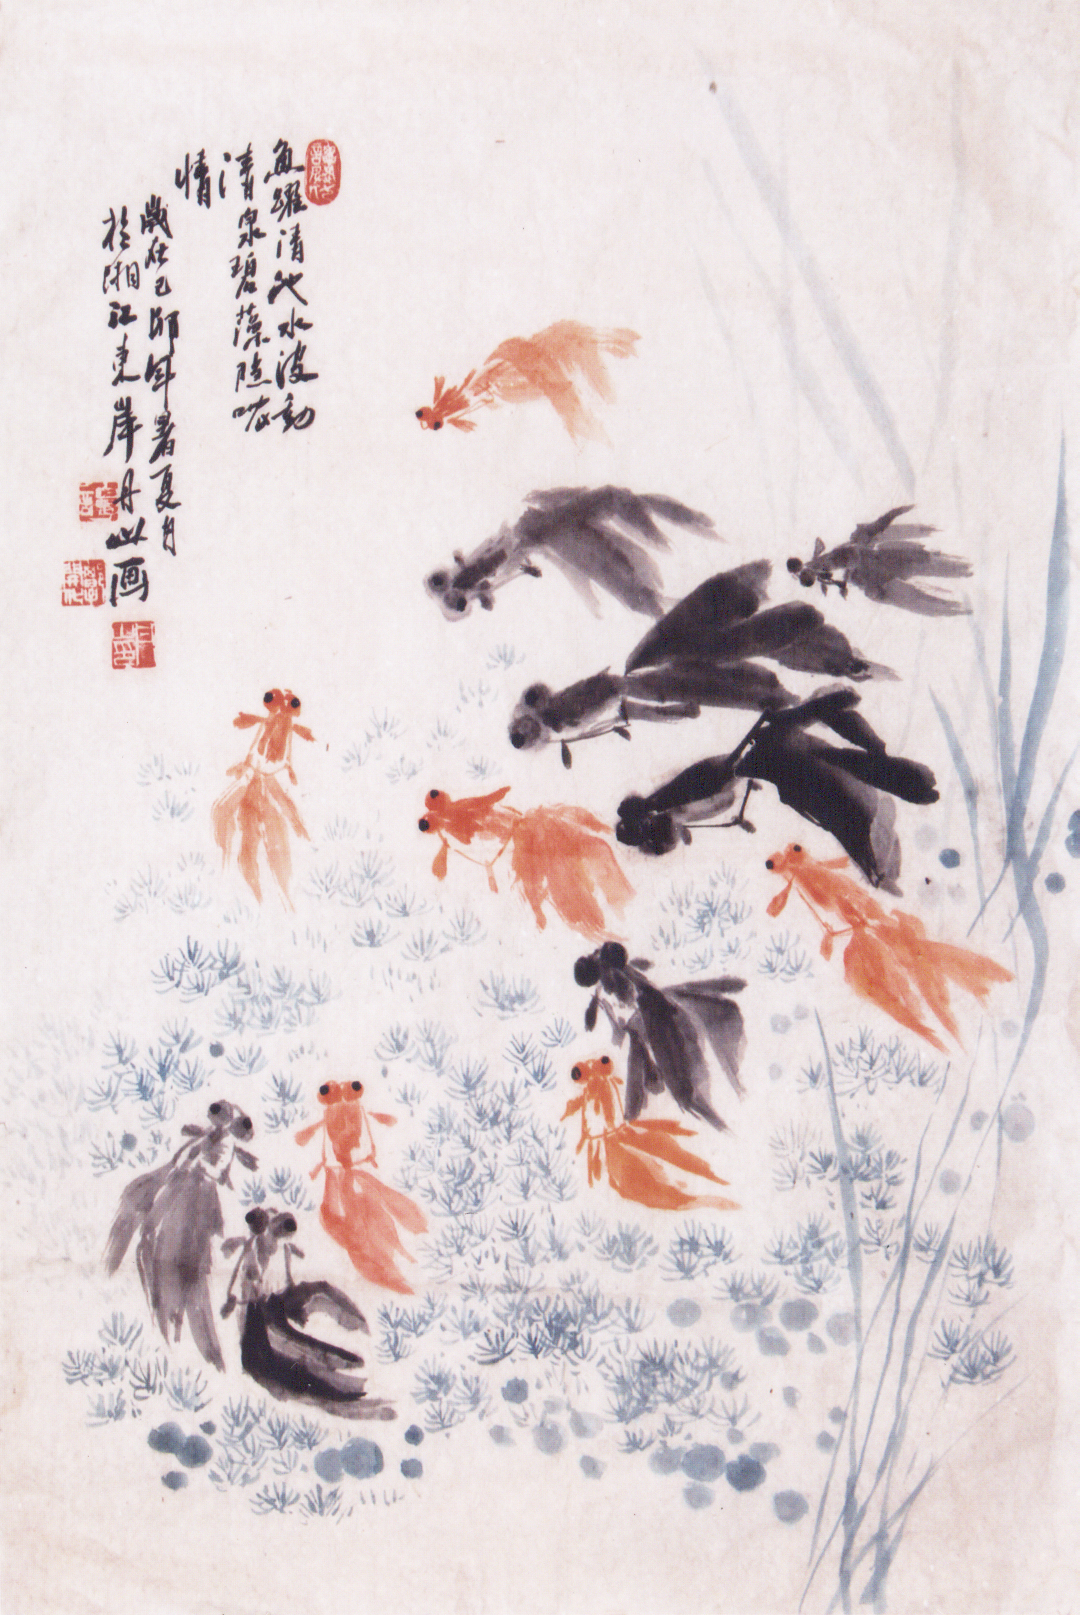 魚躍清池水波動
清泉碧藻隐
情
歲在己卯年暑夏月
於湘江東岸丹山画